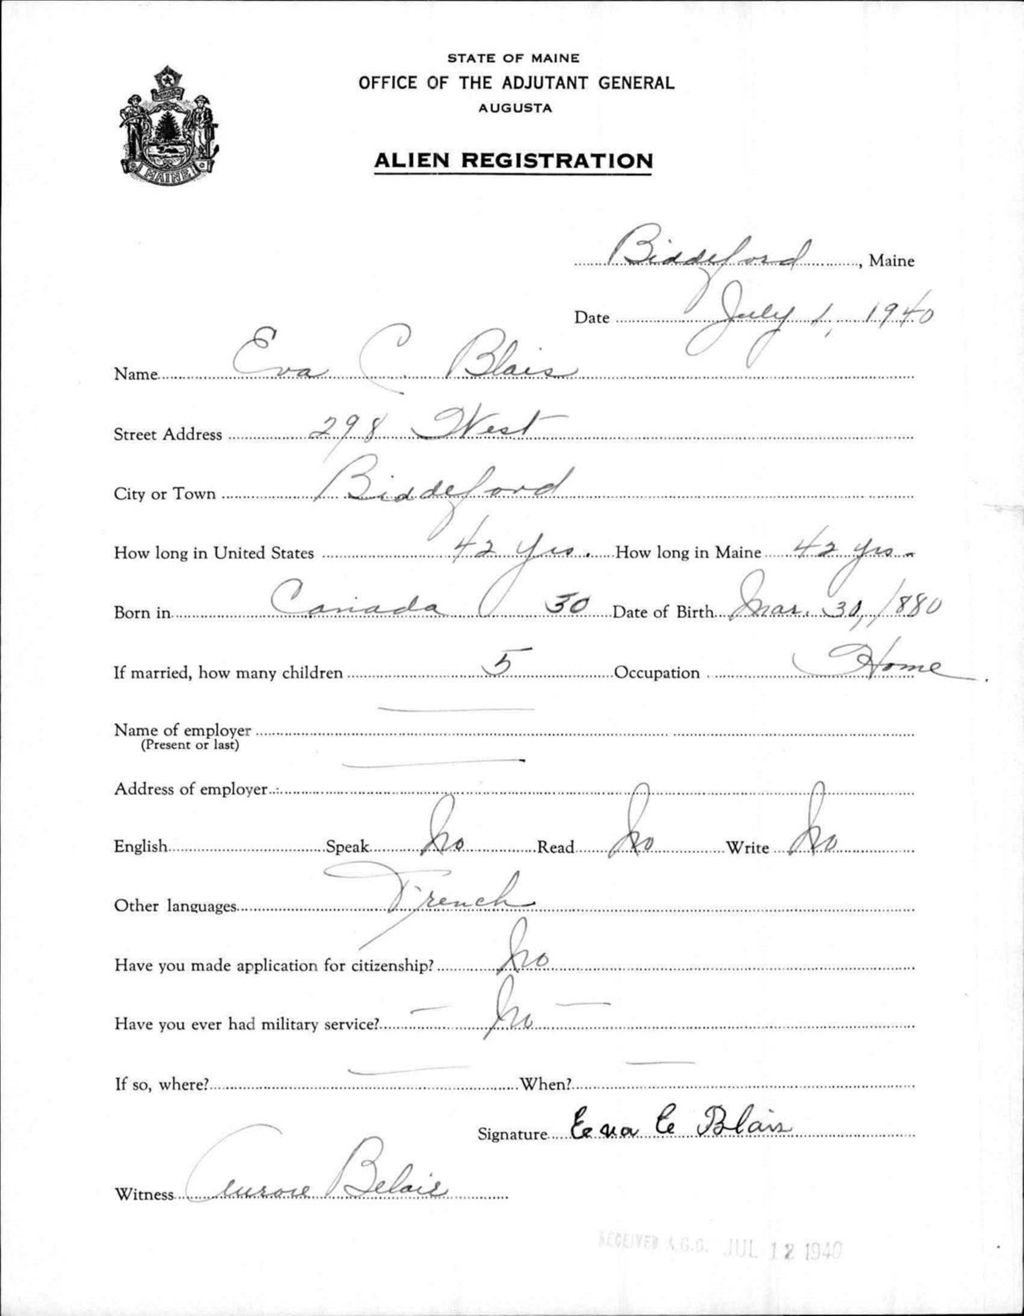 STATE OF MAINE
OFFICE OF THE ADJUTANT GENERAL
AUGUSTA
ALIEN REGISTRATION
MAINE
Biddeford, Maine
Date July 1, 1940
Name Eva C. Blais
Street Address 298 West
City or Town Biddeford
How long in United States 42 yrs. How long in Maine 42 yrs.
Born in Canada 30 Date of Birth Mar. 30, 1880
If married, how many children 5 Occupation Home
Name of employer
(Present or last)
Address of employer
English Speak No Read No Write No
Other languages French
Have you made application for citizenship? No
Have you ever had military service? No
If so, where? When?
Signature Eva C Blais
Witness Aurore Belair
RECEIVED A.G.O. JUL 12 1940